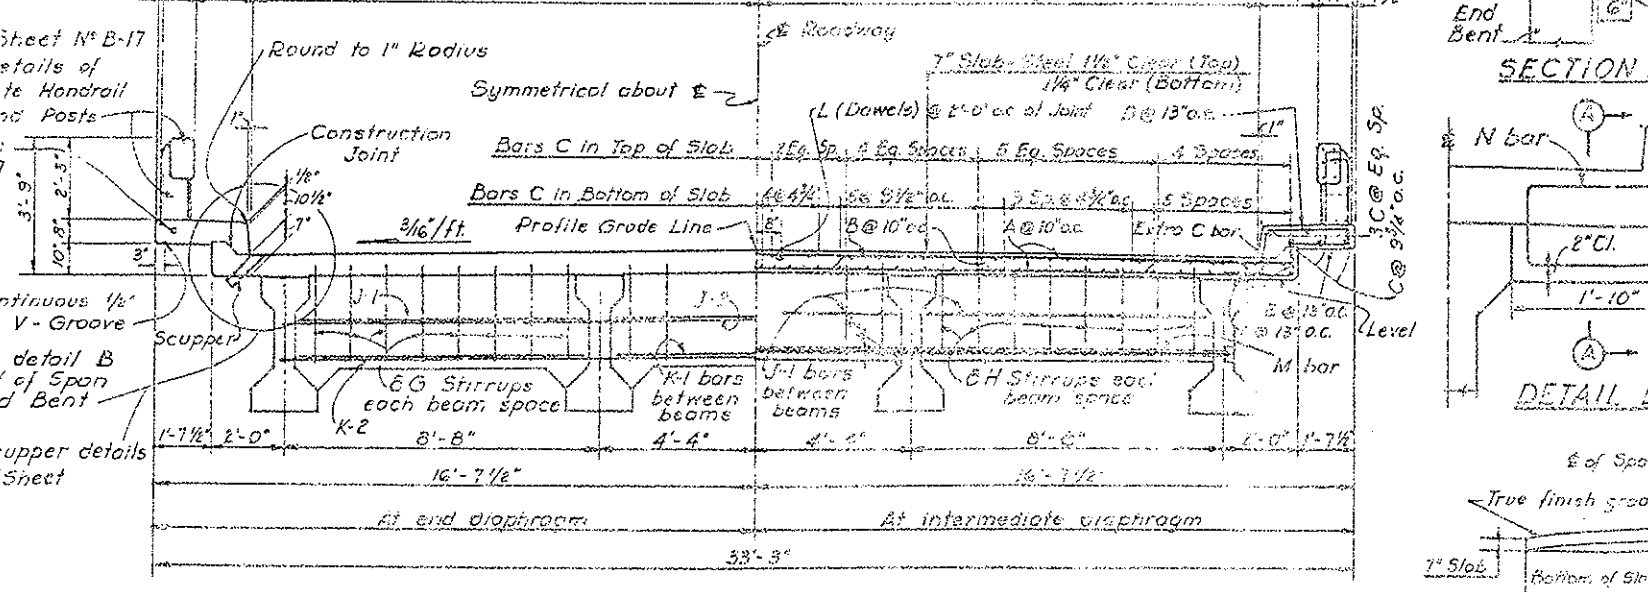 Sheet Nº B-17
Details of
Handrail
Posts
Round to 1" Radius
Construction
Joint
1"
3'-9"
2'-5"
10"
8"
3"
1/2"
10 1/2"
7"
3/16"/ft.
Continuous 1/2"
V-Groove
Scupper
detail B
of Span
Bent
Scupper details
Sheet
℄ Roadway
Symmetrical about ℄
7" Slab-Steel 1 1/2" Clear (Top)
1 1/4" Clear (Bottom)
L (Dowels) @ 2'-0" o.c. at Joint
D @ 13" o.c.
1"
Bars C in Top of Slab
Eq. Sp.
4 Eq. Spaces
5 Eq. Spaces
4 Spaces
Bars C in Bottom of Slab
5 Spaces
Profile Grade Line
B @ 10" o.c.
A @ 10" o.c.
Extra C bar
3 C @ Eq. Sp.
C @ 9 3/4" o.c.
@ 13" o.c.
@ 13" o.c.
Level
M bar
J-1
J-2
6 G Stirrups
each beam space
K-2
K-1 bars
between
beams
J-1 bars
between
beams
6 H Stirrups each
beam space
1'-7 1/2"
2'-0"
8'-8"
4'-4"
2'-0"
1'-7 1/2"
16'-7 1/2"
16'-7 1/2"
At end diaphragm
At intermediate diaphragm
33'-3"
End
Bent
6"
SECTION
A
N bar
2" Cl.
1'-10"
A
DETAIL
℄ of
True finish
7" Slab
Bottom of